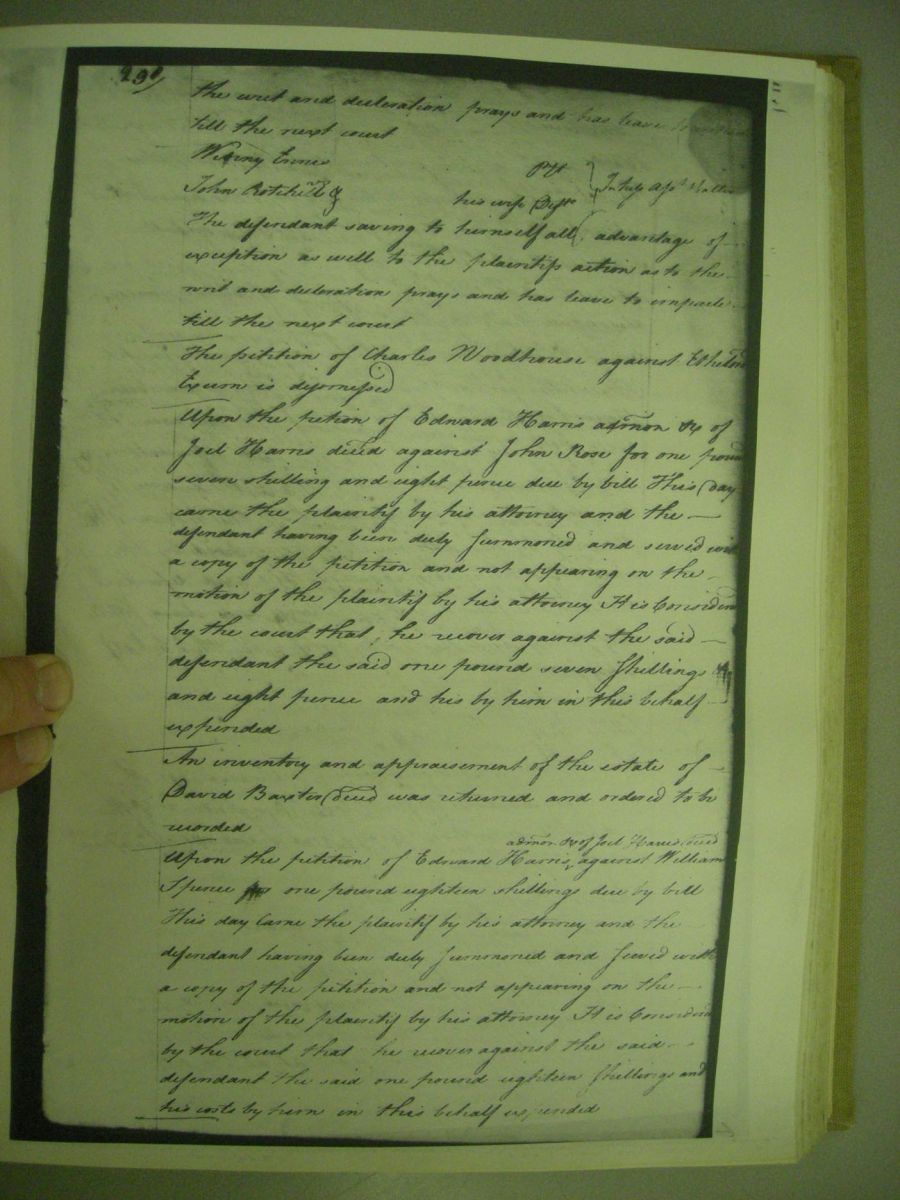 230/
the writ and decleration prays and has leave
till the next court
Winny Ennis Plt
John his wife Deft In Tresp
The defendant saving to himself all advantage of
exception as well to the plaintifs action as to the
writ and decleration prays and has leave to imparle
till the next court
The petition of Charles Woodhouse against
Exum is dismessed
Upon the petion of Edward Harris admon &c of
Joel Harris deced against John Rose for one pound
seven shilling and eight pence due by bill This day
came the plaintif by his attorney and the
defendant having been duly summoned and served with
a copy of the petition and not appearing on the
motion of the plaintif by his attorney It is Considered
by the court that he recover against the said
defendant the said one pound seven shillings
and eight pence and his by him in this behalf
expended
An inventory and appraisement of the estate of
David Baxter deced was returned and ordered to be
recorded
admon &c of Joel Harris deced
Upon the petition of Edward Harris against William
Spence for one pound eighteen shillings due by bill
This day Came the plaintif by his attorney and the
defendant having been duly summoned and served with
a copy of the petition and not appearing on the
motion of the plaintif by his attorney It is Considered
by the court that he recover against the said
defendant the said one pound eighteen shillings and
his costs by him in this behalf expended